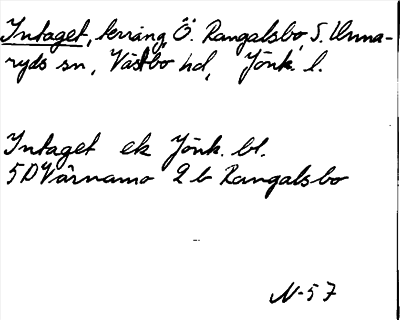 Intaget, terräng Ö. Rangalsbo, S. Unna-
ryds sn, Västbo hd, Jönk. l.
Intaget ek Jönk. bl.
5D Värnamo 2 b Rangalsbo
N-57